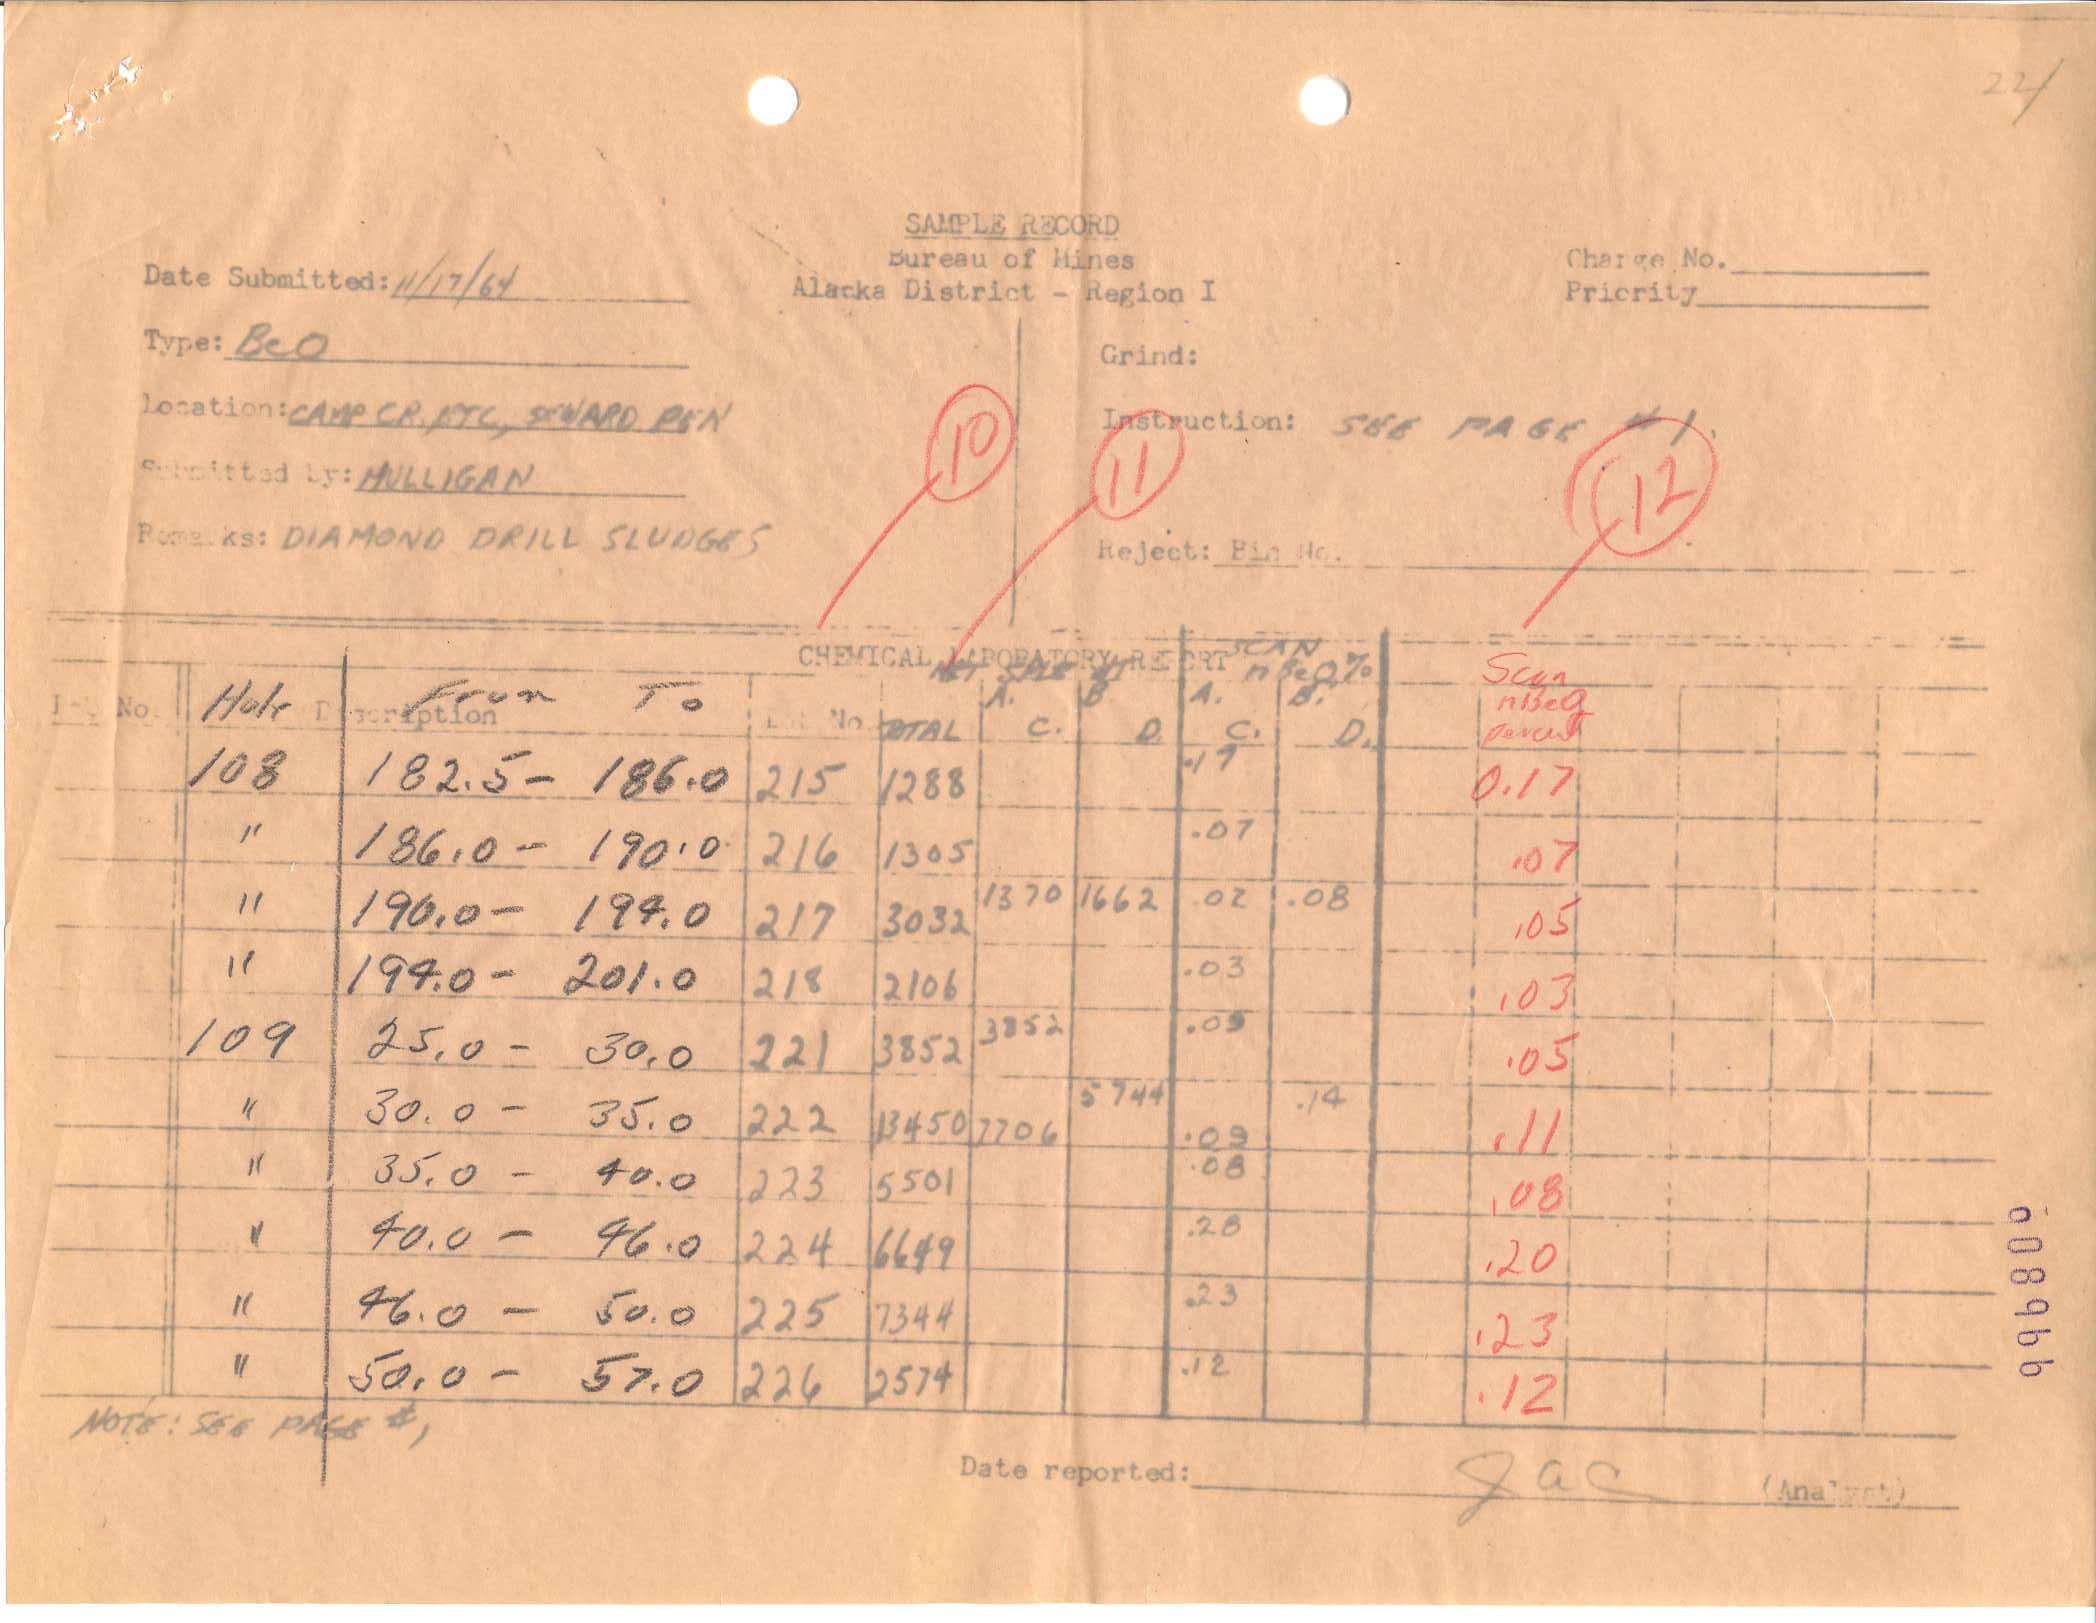 22/
SAMPLE RECORD
Bureau of Mines
Alaska District - Region I
Charge No.
Priority
Date Submitted: 11/17/64
Type: BeO
Location: CAMP CR. ETC, SEWARD PEN
Submitted by: MULLIGAN
Remarks: DIAMOND DRILL SLUDGES
Grind:
Instruction: SEE PAGE #1.
Reject: Bin No.
10
11
12
CHEMICAL LABORATORY REPORT
NET SPLE WT SCAN nBeO% Scan nBeO percent
No. Hole Description From To No. TOTAL A. B A. B.
C. D. C. D.
108 182.5 - 186.0 215 1288 .17 0.17
" 186.0 - 190.0 216 1305 .07 .07
" 190.0 - 194.0 217 3032 1370 1662 .02 .08 .05
" 194.0 - 201.0 218 2106 .03 .03
109 25.0 - 30.0 221 3852 3852 .05 .05
" 30.0 - 35.0 222 13450 7706 5744 .09 .14 .11
" 35.0 - 40.0 223 5501 .08 .08
" 40.0 - 46.0 224 6649 .20 .20
" 46.0 - 50.0 225 7344 .23 .23
" 50.0 - 57.0 226 2574 .12 .12
NOTE: SEE PAGE #1
Date reported: JAC (Analyst)